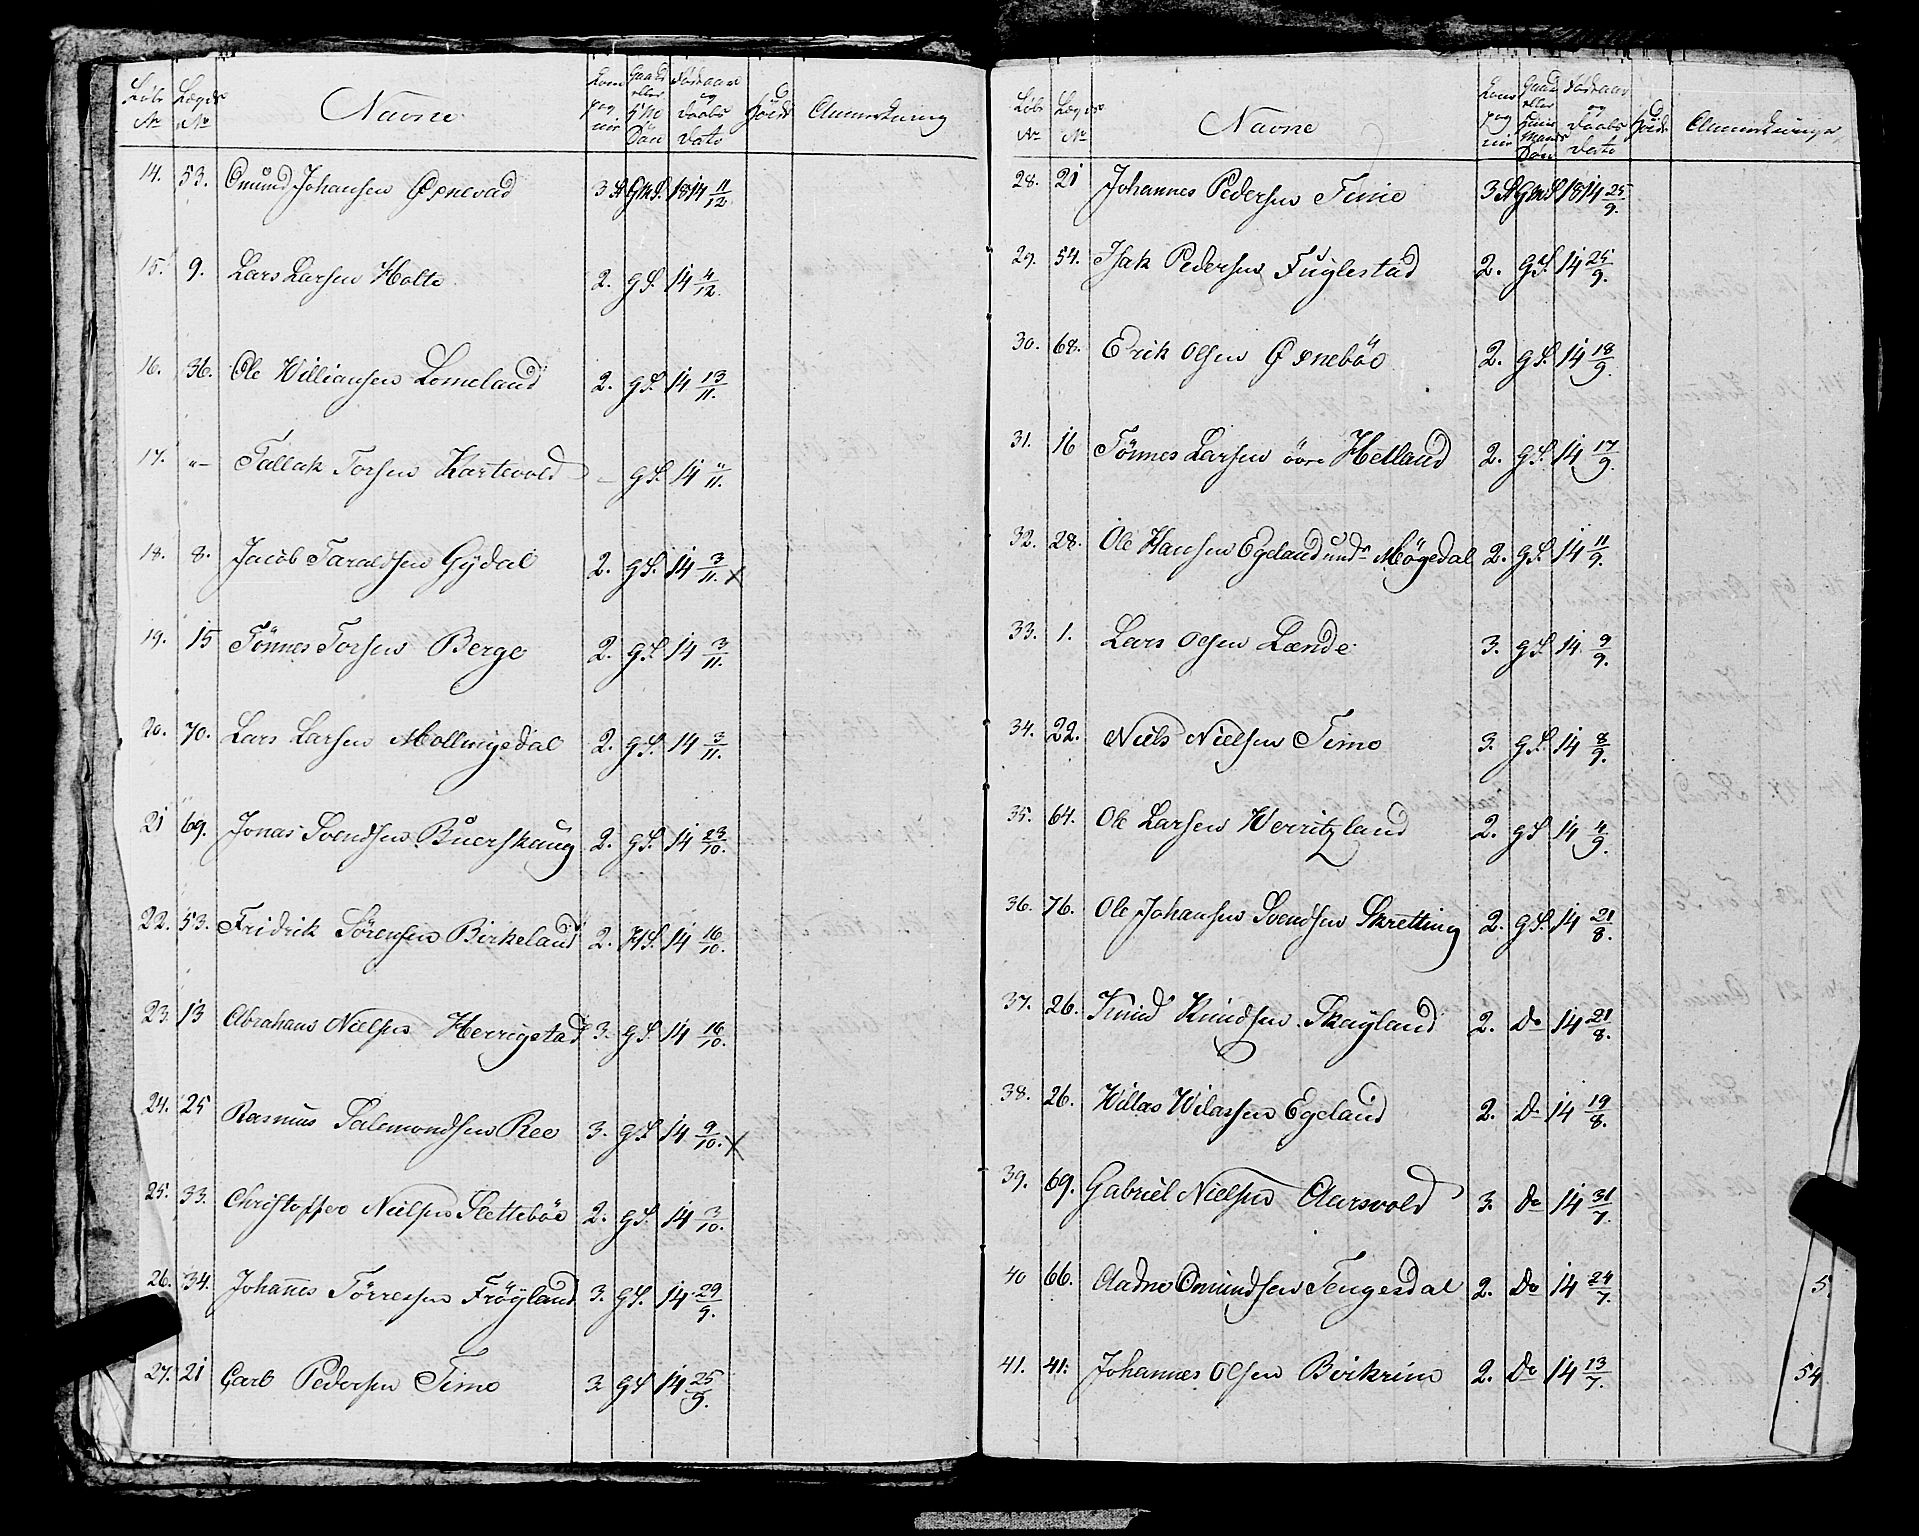 Løb Nr | Lægds Nr | Navne | Com pag nie | Gaard eller H. M. Søn | Fødeaar og Daabs Dato | Høide | Anmerkning
14. 53. Omund Johansen Øxnevad 3 St GM S. 1814 11/12
15. 9. Lars Larsen Holte 2. g S. 14 4/12.
16. 36. Ole Williansen Lomeland 2. g S. 14 13/11.
17. "– Tallak Torsen Kartevold – g S. 14 "/11.
18. 8. Jacob Taraldsen Gydal 2. g S. 14 3/11. x
19. 15 Tönnes Torsen Berge 2. g S. 14 3/11.
20. 70. Lars Larsen Mollingsdal 2. g S. 14 3/11.
21 69. Jonas Svendsen Buerskaug 2. g S. 14 23/10.
22. 53. Fridrik Sörensen Birkeland 2. H S. 14 16/10.
23. 13 Abraham Nielsen Herrigstad 3. g S. 14 16/10.
24. 25 Rasmus Salemondsen Ree 3. g S 14 9/10. x
25. 33. Christopher Nielsen Slettebøe 2. g S. 14 3/10.
26. 34. Johannes Törresen Fröyland 3. g S. 14 29/9.
27. 21 Carl Pedersen Time 3 g S 14 25/9.
Løb Nr | Lægds Nr | Navne | Com pag nie | Gaard eller Huus Mands Søn | Fødeaar og Daabs Dato | Høide | Anmerkninger
28. 21 Johannes Pedersen Time 3 St GM S 1814 25/9.
29. 54. Isak Pedersen Fuglestad 2. g S. 14 25/9.
30. 68. Erik Olsen Øxneböe 2. g S. 14 18/9.
31. 16 Tönnes Larsen övre Helland 2. g S. 14 17/9.
32. 28. Ole Hansen Egeland undr Mögedal 2. g S. 14 11/9.
33. 1. Lars Olsen Lænde 3. g S. 14 9/9.
34. 22. Niels Nielsen Time 3. g S. 14 8/9.
35. 64. Ole Larsen Werritzland 2. g S 14 4/9.
36. 76. Ole Johansen Svendsen Skretting 2. g S. 14 21/8.
37. 26. Knud Knudsen Skayland 2. Do 14 21/8.
38. 26. Willas Wilassen Egeland 2. Do 14 19/8.
39. 69. Gabriel Nielsen Aarsvold 3. Do 14 31/7.
40 66. Aadne Omundsen Tengesdal 2. Do 14 24/7. 5
41. 41. Johannes Olsen Birkrim 2. Do 14 13/7. 54